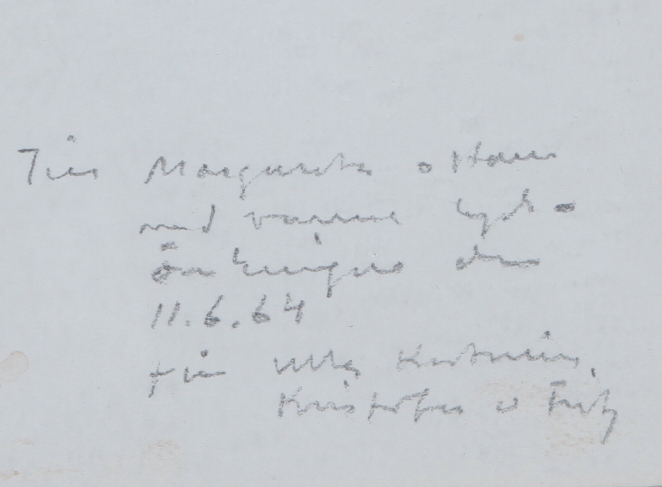 Till Margareta o Hans
med varma lyck-
önskningar den
11.6.64
från Ulla Katarina,
Kristofer o Fritz